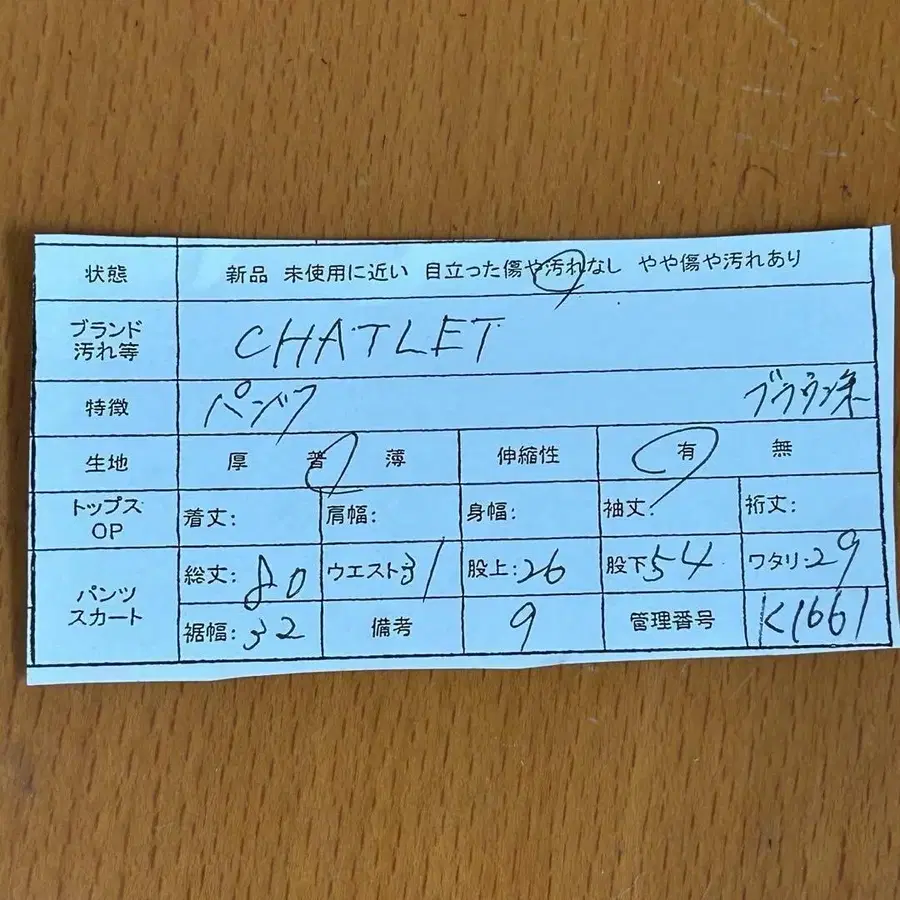 状態 新品 未使用に近い 目立った傷や汚れなし やや傷や汚れあり
ブランド
汚れ等
CHATLET
特徴 パンツ ブラウン系
生地 厚 普 薄 伸縮性 有 無
トップス
OP
着丈: 肩幅: 身幅: 袖丈: 裄丈:
パンツ
スカート
総丈: 80 ウエスト31 股上:26 股下54 ワタリ:29
裾幅:32 備考 9 管理番号 K1661